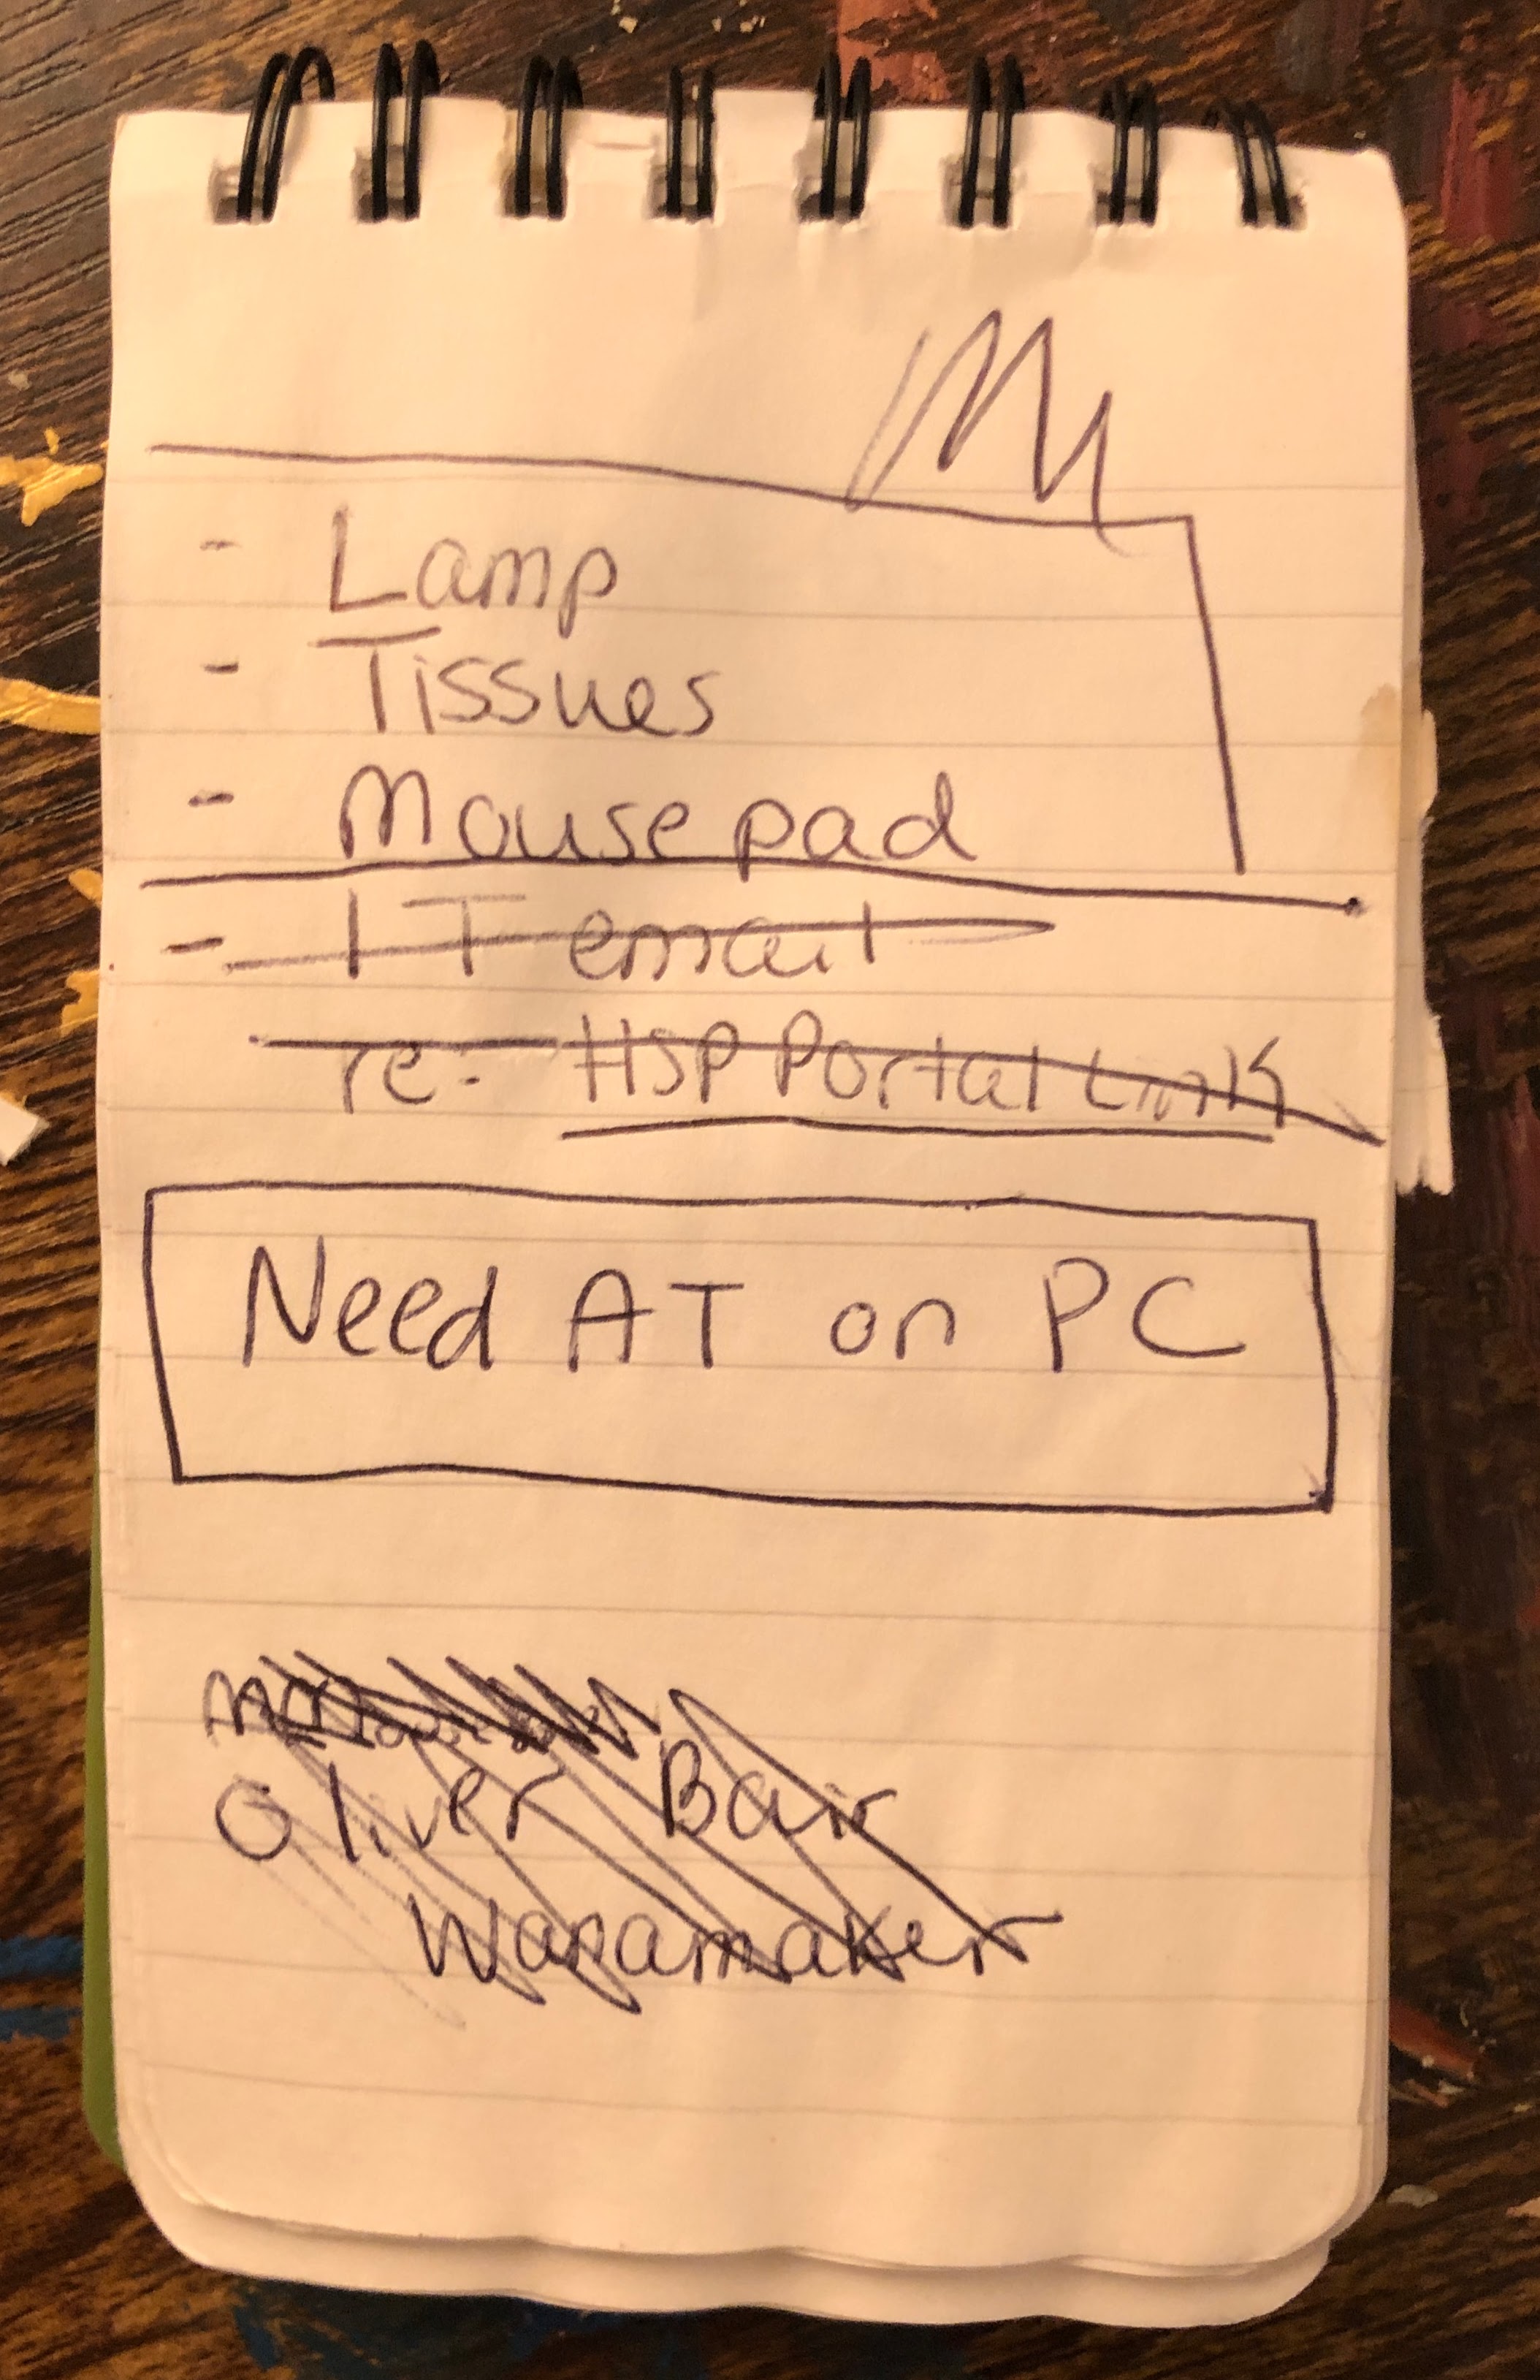 - Lamp
- Tissues
- Mousepad
- IT email
re: HSP Portal Link
Need AT on PC
Oliver Bair
Wanamaker